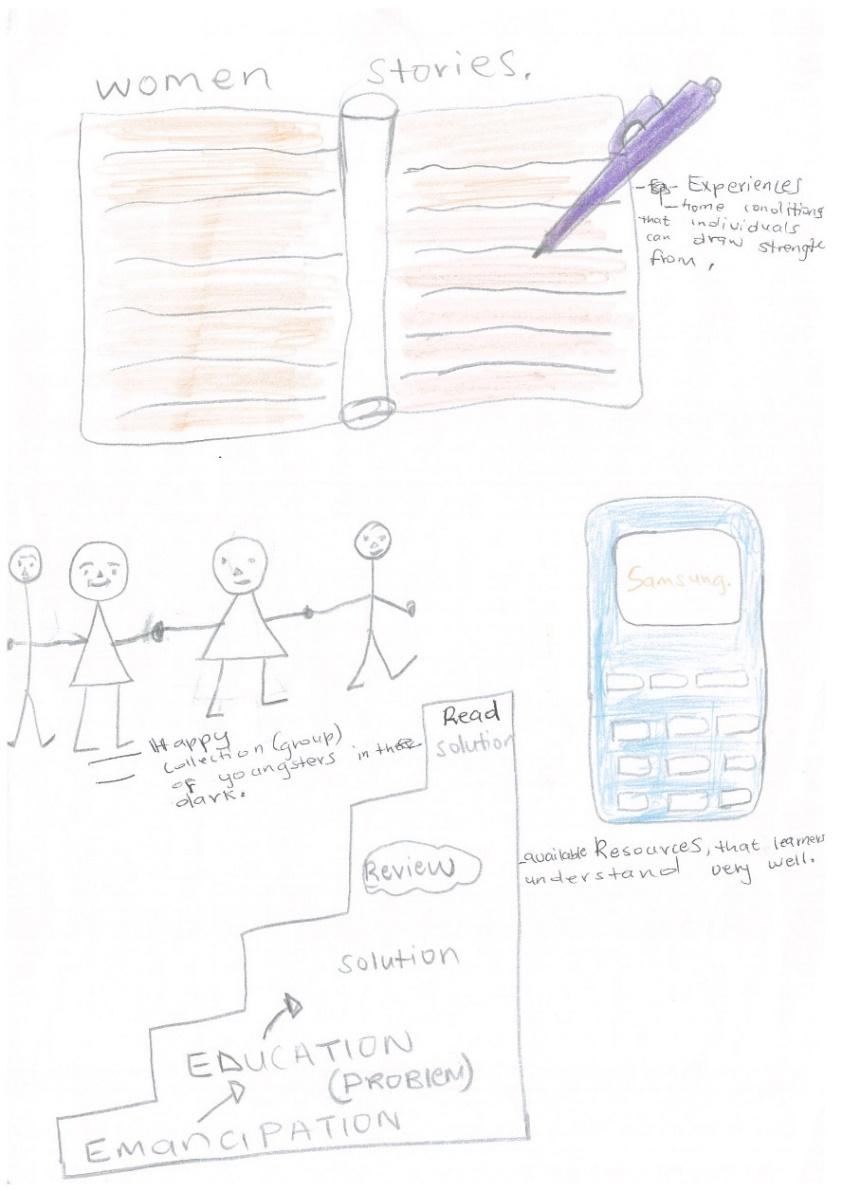 women stories.
- Experiences
- home conditions
that individuals
can draw strength
from,
Samsung.
Happy
collection (group)
of youngsters in the
dark.
Read
solution
- available Resources, that learners
understand very well.
Review
solution
EDUCATION
(PROBLEM)
EmanciPATION